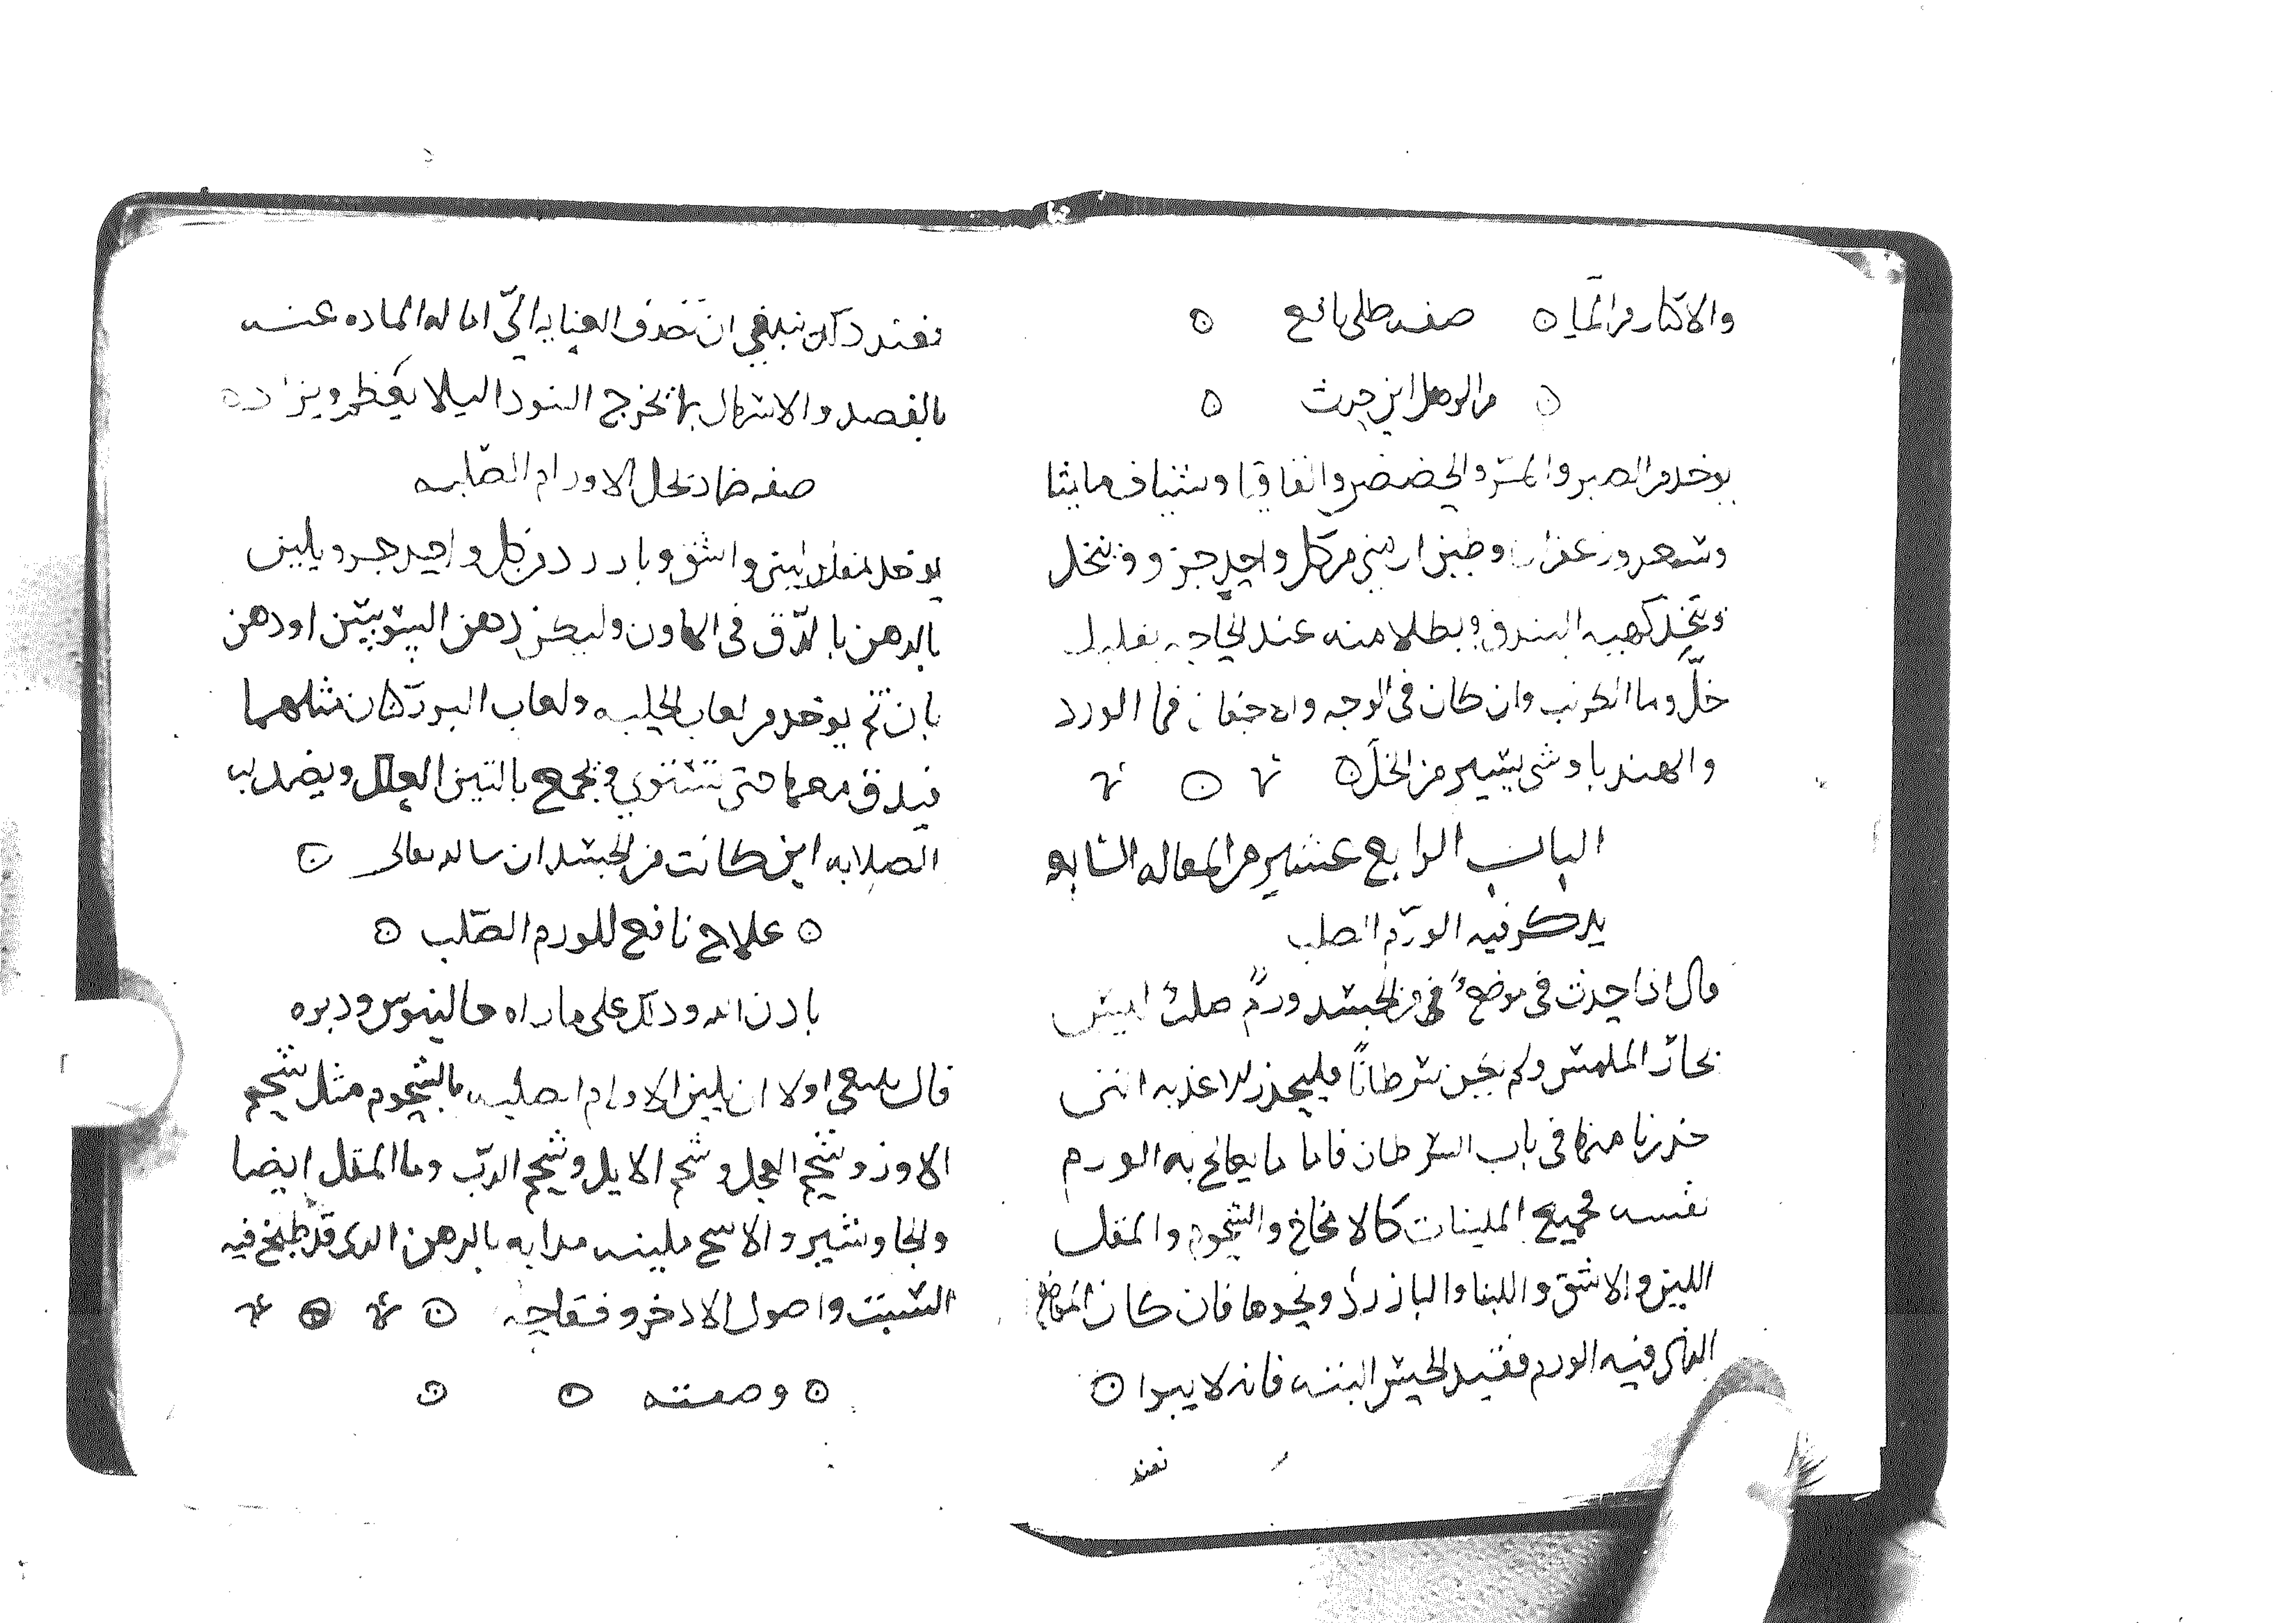 والاكثار من الما ۞ صفه طلى نافع ۞
۞ من الوهل اين حدث ۞
يوخد من الصبر والمر والحضض واقاقيا وشياف مامیثا
وزعفران وطين ارمني من كل واحد جزو وينخل
ويتخد كهيه البندق ويطلا منه عند الحاجه بقليل
خلّ وما الكرنب وان كان في الوجه والاجفان فما الورد
والهندبا وشى يسير من الخلّ ۞
الباب الرابع عشر من المقاله الثانيه
يدكر فيه الورم الصلب
قال اذا حدث في موضع من الجسد ورمٌ صلبٌ ليس
بحارّ الملمس ولم يكن سرطاناً فليحذر الاغذيه التى
حذرنا منها في باب السرطان فاما ما يعالج به الورم
نفسه فجميع الملينات كالامخاخ والشحوم والمقل
اللين والاشق واللبنا والبازرد ونحوها فان كان الموضع
الذى فيه الورم فقيد الحس البته فانه لا يبرا ۞
فعند
فعند دلك ينبغي ان تصرف العنايه الى اماله الماده عنه
بالفصد والاسهال بما يخرج السودا ليلا يعظم ويزداد
صفه ضماد يحل الاورام الصلبه
يوخد مقل لين واشق وبازرد من كل واحد جزو يلين
بالدهن بالدّق في الهاون وليكن دهن السوسن او دهن
بان ثم يوخد من لعاب الحلبه ولعاب البزركتان مثلهما
فيدق معهما حتى تستوي ويجمع بالتين العلك ويضمد به
الصلابه اين كانت من الجسد ان سا الله تعالى ۞
۞ علاج نافع للورم الصلب ۞
بادن الله ودلك على ما راه جالينوس ودبره
قال ينبغى اولا ان يلين الاورام الصلبه بالشحوم مثل شحم
الاوز وشحم العجل وشحم الايل وشحم الدبّ وما المقل ايضا
والجاوشير والاشج ملينه مدابه بالدهن الدى قد طبخ فيه
الشبت واصول الادخر وفقاحه ۞
۞ وصفته ۞ ۞